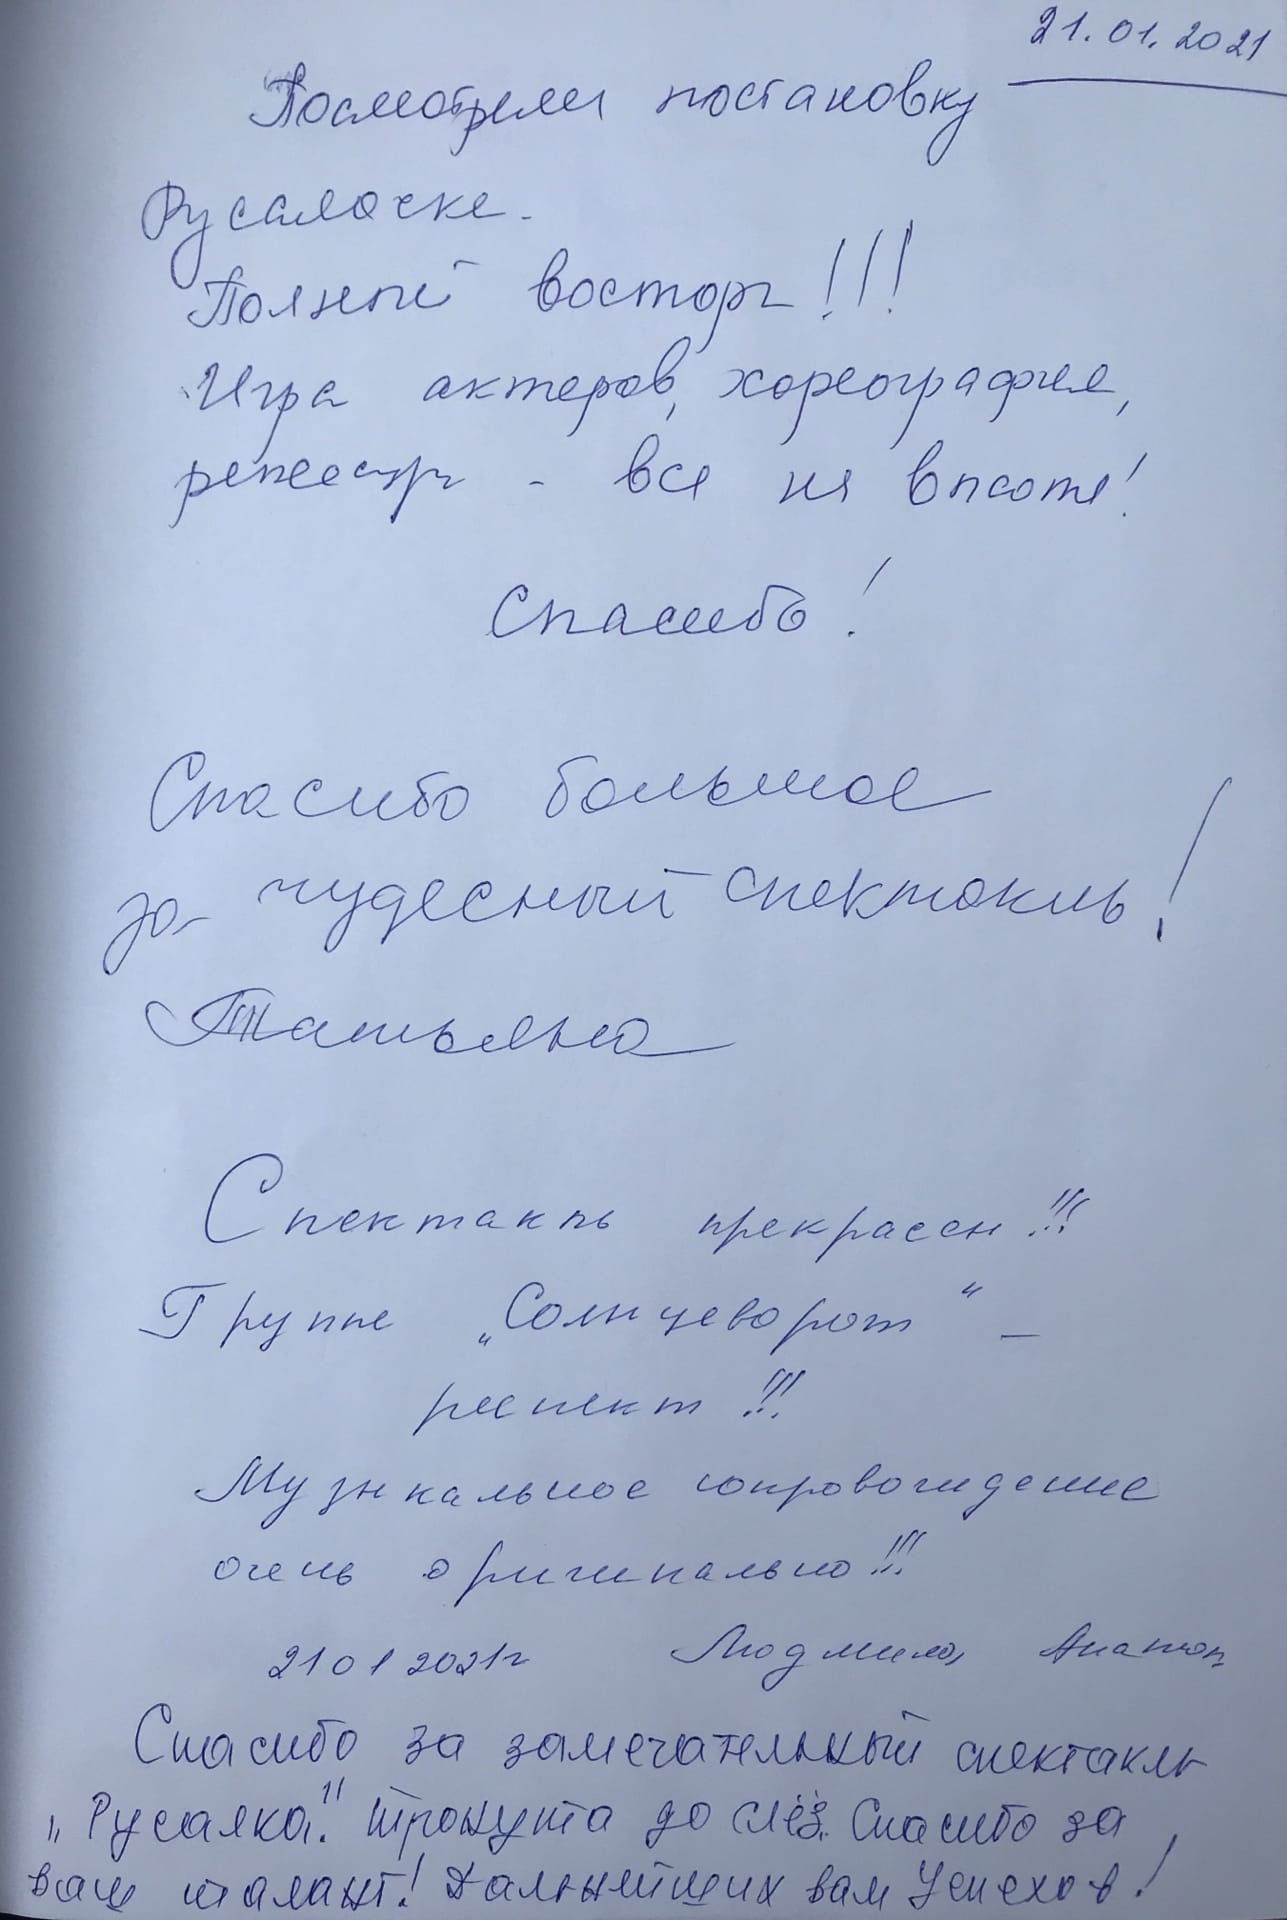 21.01.2021
Посмотрели постановку
Русалочке.
Полный восторг!!!
Игра актеров, хореография,
режессур - все на высоте!
Спасибо!
Спасибо большое
за чудесный спектакль!
Татьяна
Спектакль прекрасен!!!
Группе „Солнцеворот“ –
респект!!!
Музыкальное сопровождение
очень оригинально!!!
21 01 2021г Людмила, Анатол.
Спасибо за замечательный спектакль
„Русалка“. Тронута до слёз. Спасибо за
ваш талант! Дальнейших вам Успехов!